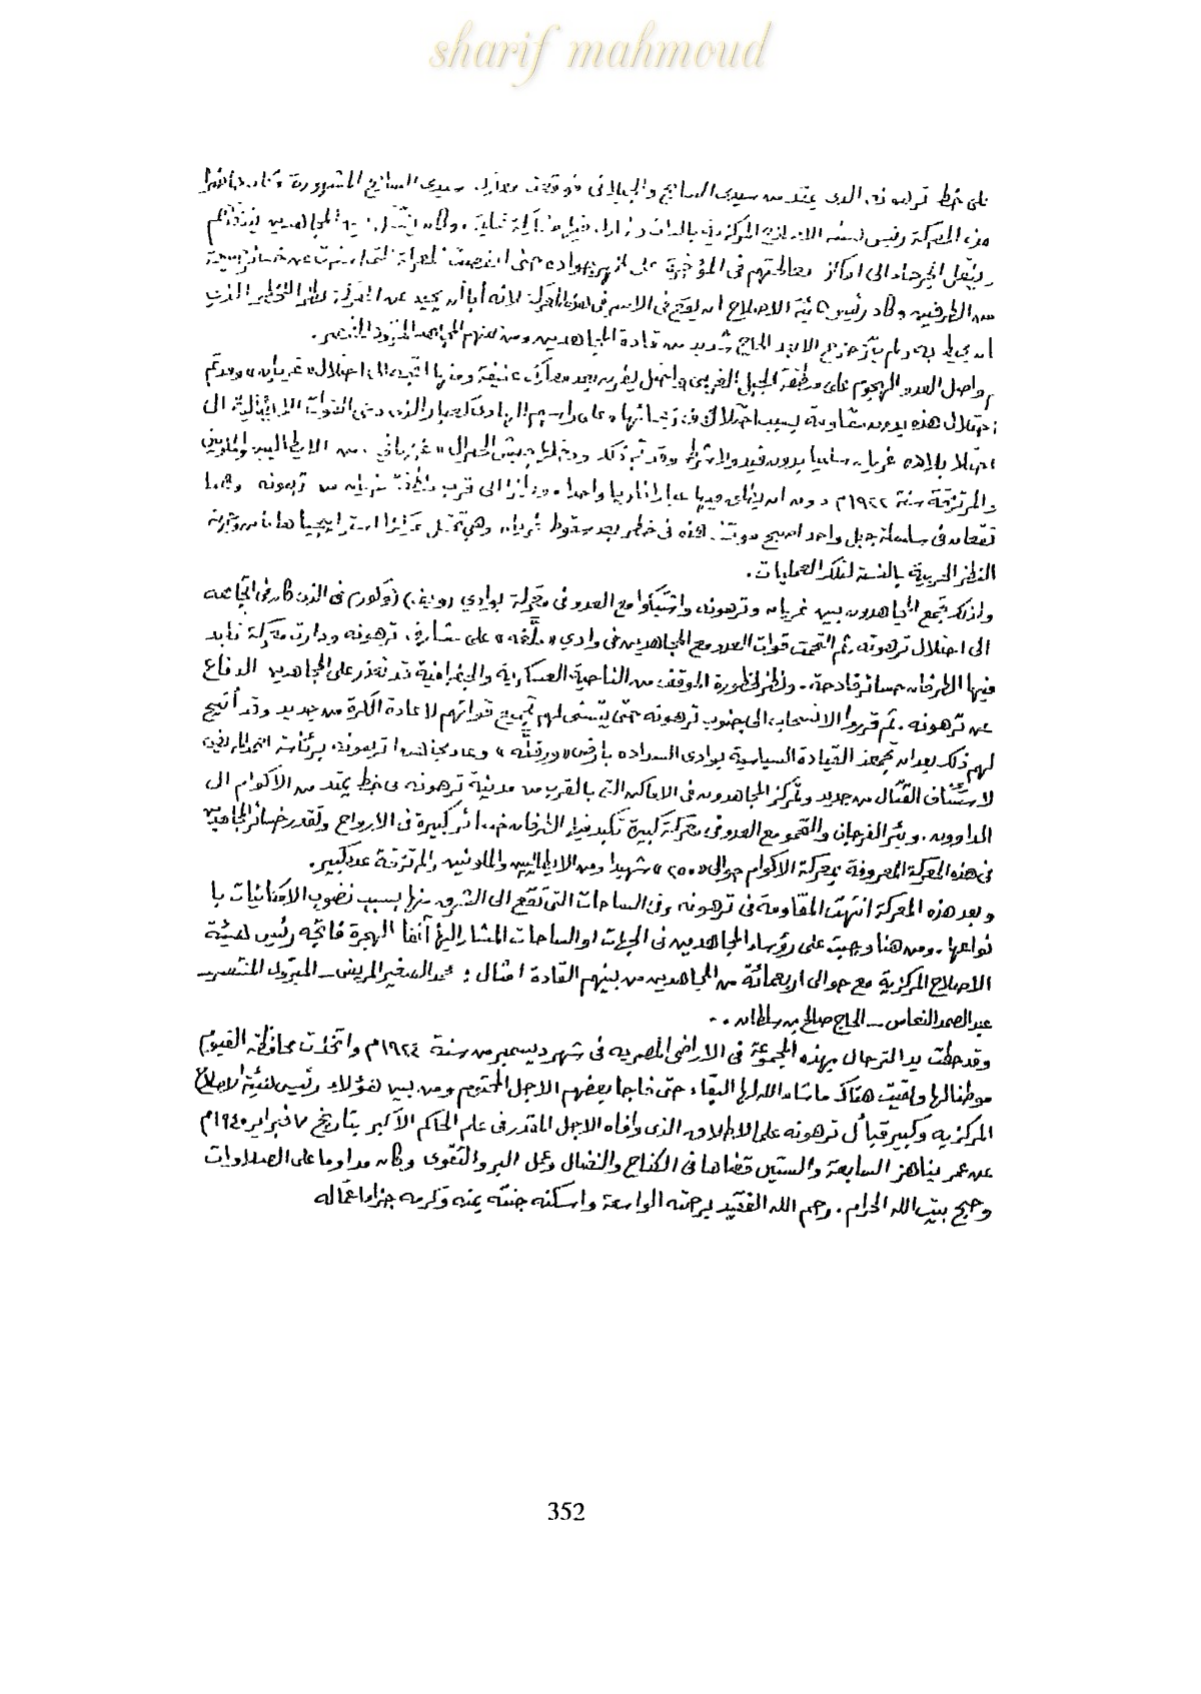 sharif mahmoud
على خط ترهونة الذي يمتد من سيدي السائح والجبال فوقعت معارك سيدي السائح المشهورة وكان حاضرا
هذه المعركة رئيس هيئة الاصلاح المركزية بالذات
الجرحاء الى اماكن معالجتهم فى المؤخرة على حتى انتهت المعركة
من الطرفين وكاد رئيس هيئة الاصلاح ان يقع فى الاسر فى هذه المعركة لانه أبا أن يحيد عن المعركة نظرا للخطر الذي
يحيط به الحاج شديد من قادة المجاهدين ومن بينهم المجاهد
واصل العدو الهجوم على منطقة الجبل الغربى معارك عنيفة ومنها اتجه الى احتلال «غريان» وقد تم
احتلال هذه بدون مقاومة بسبب
احتلال بلاده غريان سلميا بدون قيد ولا شرط وقد تم ذلك ودخلها جيش الجنرال «غرزياني» من الايطاليين والملونين
والمرتزقة سنة ١٩٢٢م دون ان عيارا ناريا واحدا ونظرا الى قرب منطقة غريان من ترهونه وهما
تقعان فى سلسلة جبل واحد اصبح موقف هذه فى خطر بعد سقوط غريان وهي تمثل مركزا استراتيجيا هاما من وجهة
النظر الحربية بالنسبة لتلك العمليات.
ولذلك تجمع المجاهدون بين غريان وترهونه واشتبكوا مع العدو فى معركة بوادي الذى كان فى اتجاهه
الى احتلال ترهونه. ثم التحمت قوات العدو مع المجاهدين فى وادي «ملغه» على مشارف ترهونه ودارت معركة تكبد
فيها الطرفان خسائر فادحة. ونظرا لخطورة الموقف من الناحية العسكرية والجغرافية قد تعذر على المجاهدين الدفاع
عن ترهونه. ثم قرروا الانسحاب الى جنوب ترهونه حتى يتسنى لهم تجميع قواتهم لاعادة الكرة من جديد وقد أتيح
لهم ذلك بعد ان تجمعت القيادة السياسية بوادى السداده بارض «ورفلّه» وعاد ترهونه برئاسة
لاستئناف القتال من جديد وتمركز المجاهدون فى الاماكن التى بالقرب من مدينة ترهونه فى خط يمتد من الأكوام الى
الداوون. وبئر الفرجان والتحمو مع العدو فى معركة كبيرة تكبد فيها الطرفان خسائر كبيرة فى الارواح وتقدر خسائر المجاهدين
فى هذه المعركة المعروفة بمعركة الاكوام حوالى «٢٥٠» شهيدا ومن الايطاليين والملونين والمرتزقة عدد كبير.
وبعد هذه المعركة انتهت المقاومة فى ترهونه وفى الساحات التى تقع الى الشرق منها بسبب نضوب الامكانيات با
نواعها. ومن هنا وجبت على رؤساء المجاهدين فى الجبهات او الساحات المشار اليها آنفا الهجرة فاتجه رئيس هيئة
الاصلاح المركزية مع حوالى اربعمائة من المجاهدين من بينهم القادة امثال : محمد الصغير المريض – المبروك المنتصر –
عبد الصمد النعاس – الحاج صالح بن سلطان . –
وقد حطت يد الترحال بهذه المجموعة فى الاراضى المصريه فى شهر ديسمبر من سنة ١٩٢٤م واتخذت محافظة الفيوم
موطنا لها وبقيت هناك ما شاء الله لها البقاء حتى فاجا بعضهم الاجل المحتوم ومن بين هؤلاء رئيس هيئة الاصلاح
المركزيه وكبير قبائل ترهونه على الاطلاق الذى وافاه الاجل المقدر فى علم الحاكم الأكبر بتاريخ ٧ فبراير ١٩٤٥م
عن عمر يناهز السابعة والستين قضاها فى الكفاح والنضال وعمل البر والتقوى وكان مداوما على الصلاوات
وحج بيت الله الحرام . رحم الله الفقيد برحمته الواسعة واسكنه جنته بمنه وكرمه جزاء اعماله
352